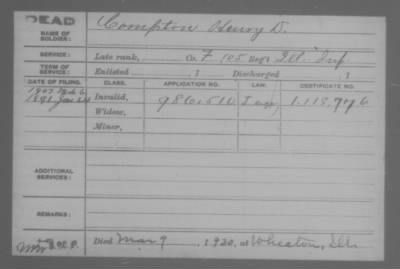 DEAD
NAME OF SOLDIER:
Compton Henry D.
SERVICE:
Late rank, Co. F, 105 Reg't Ill. Inf
TERM OF SERVICE:
Enlisted , 1 Discharged , 1
DATE OF FILING. CLASS. APPLICATION NO. LAW. CERTIFICATE NO.
1907 Feb 6
1891 Jan 24 Invalid, 986.511 1.118.976
Widow,
Minor,
ADDITIONAL SERVICES:
REMARKS:
Died Mar 9 1920, at Wheaton, Ill.